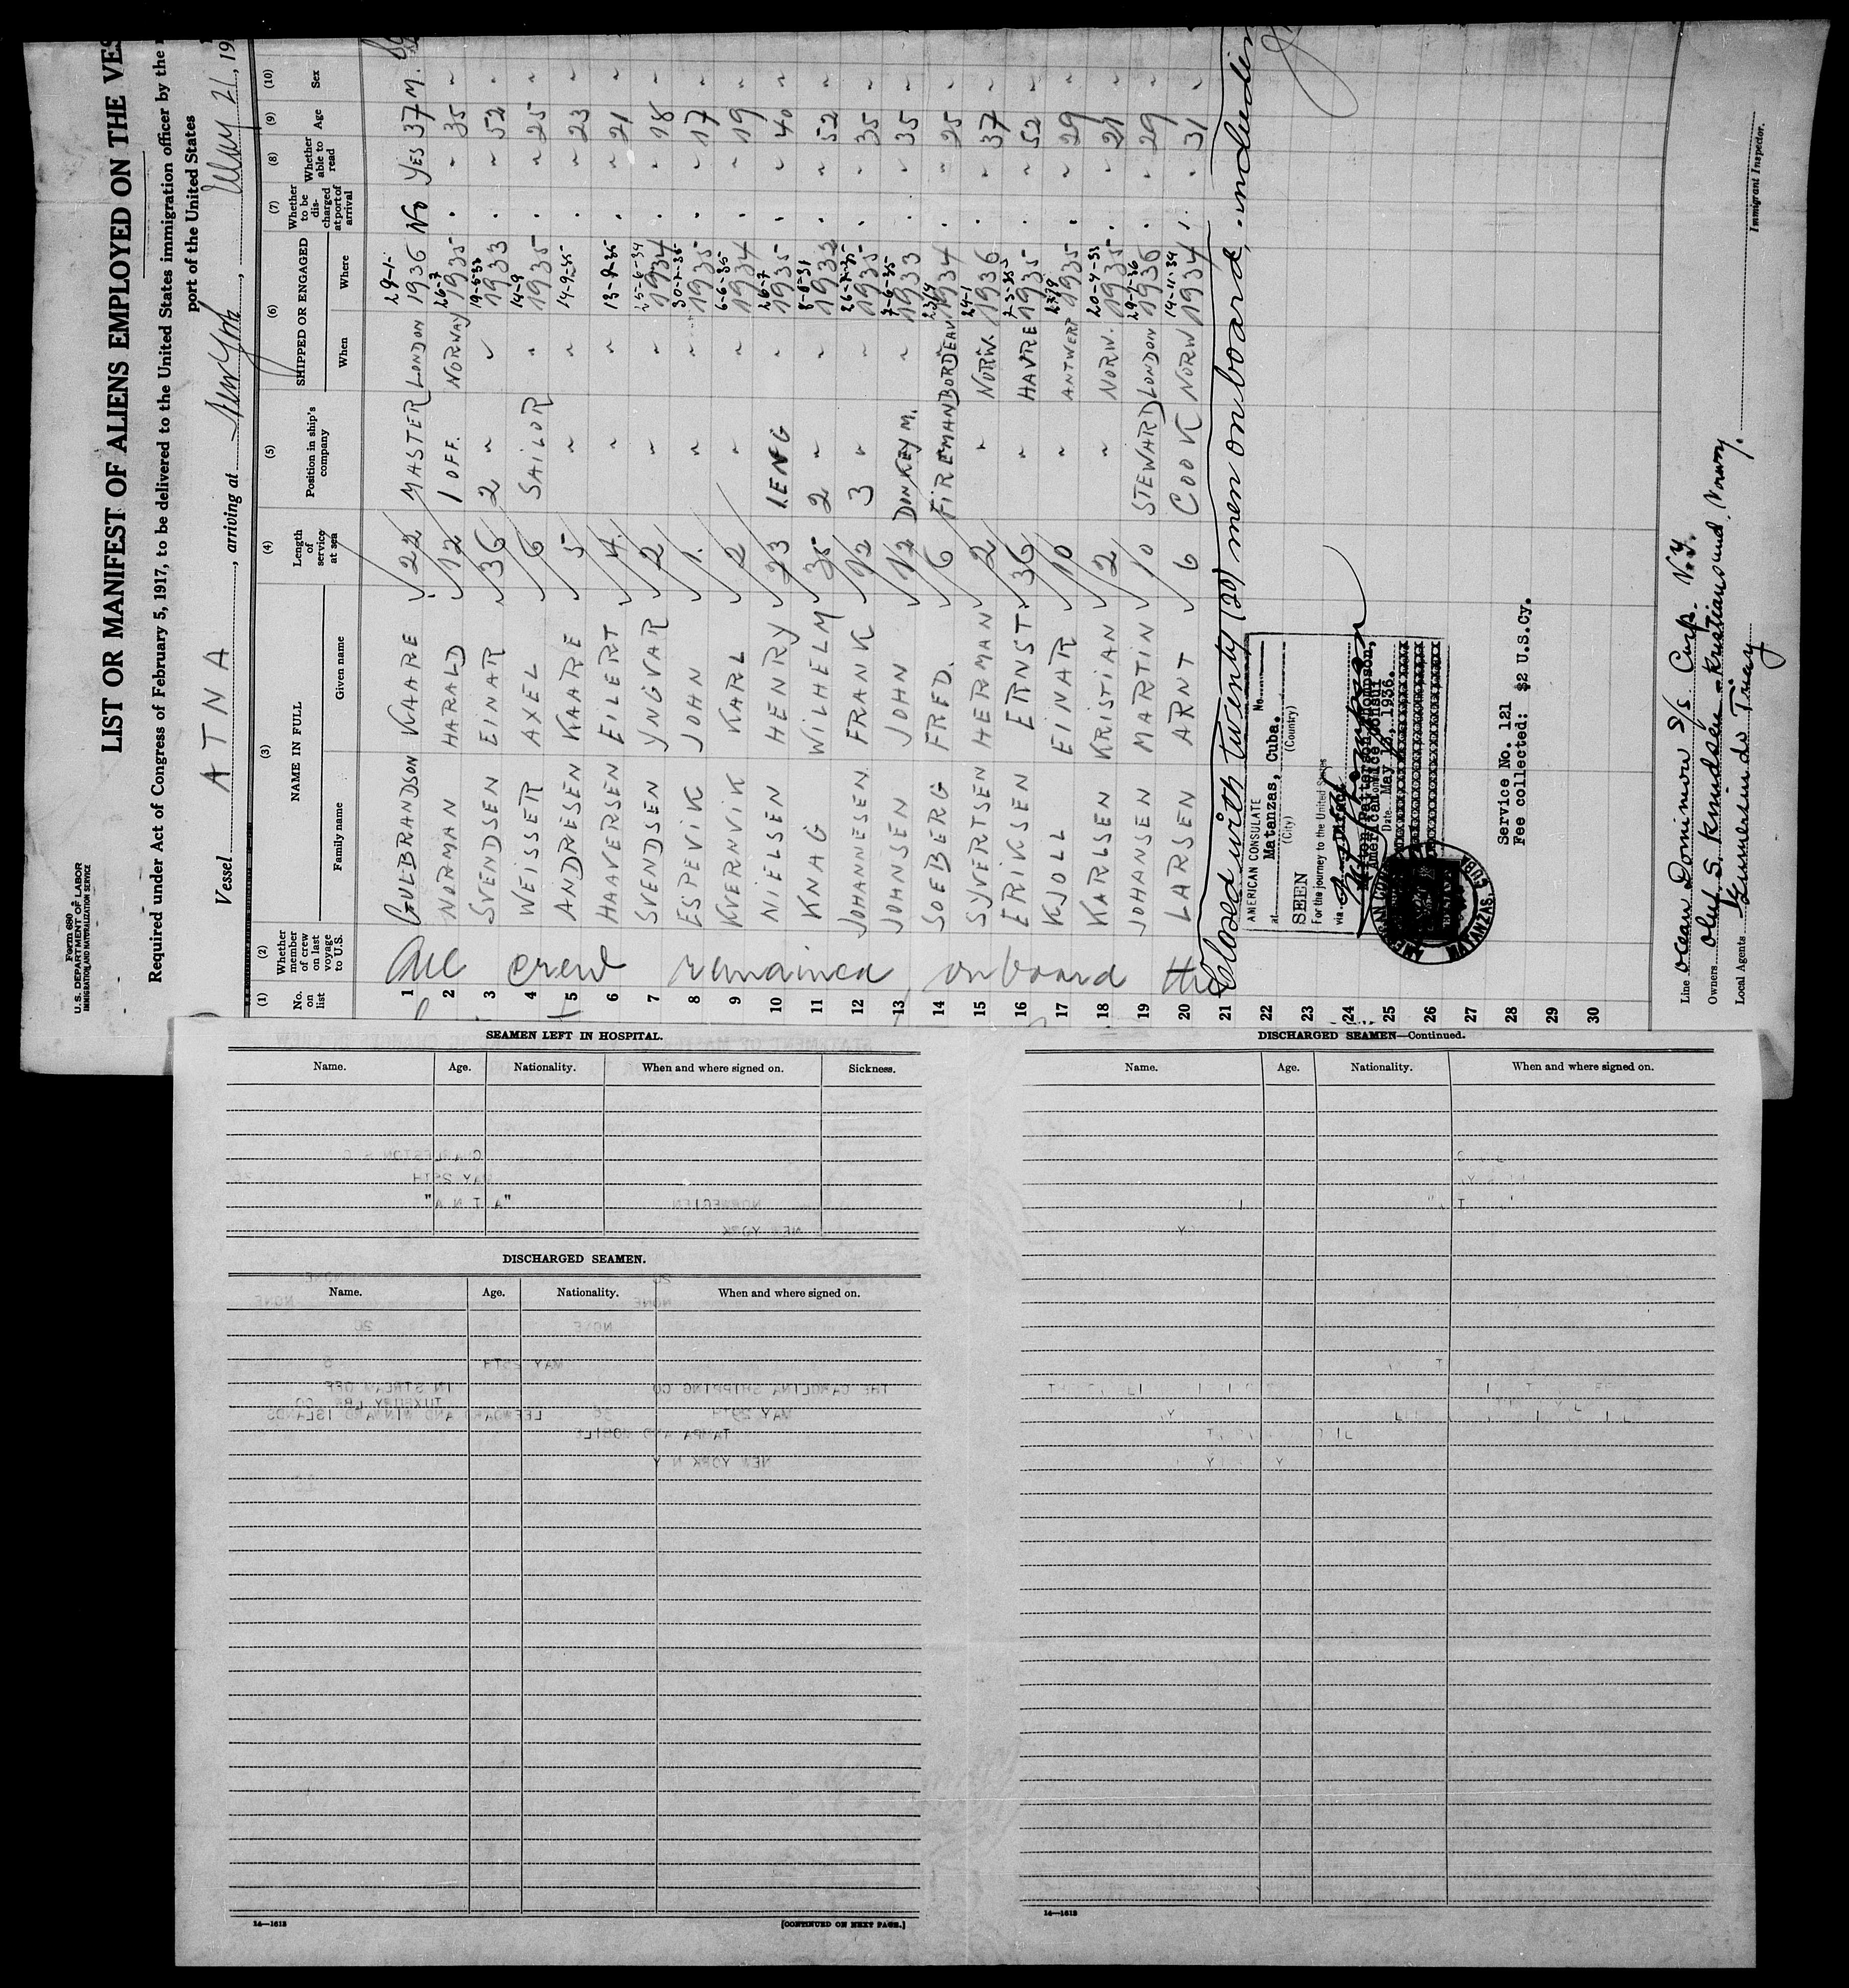 Form 680
U.S. DEPARTMENT OF LABOR
IMMIGRATION AND NATURALIZATION SERVICE
LIST OR MANIFEST OF ALIENS EMPLOYED ON THE VES
Required under Act of Congress of February 5, 1917, to be delivered to the United States immigration officer by the
port of the United States
Vessel ATNA, arriving at New York, May 21, 19
(1) (2) (3) (4) (5) (6) (7) (8) (9) (10)
No. on list
Whether member of crew on last voyage to U.S.
NAME IN FULL
Family name Given name
Length of service at sea
Position in ship's company
SHIPPED OR ENGAGED
When Where
Whether to be discharged at port of arrival
Whether able to read
Age
Sex
All crew remained onboard the
1 GULBRANDSON KAARE 22 MASTER LONDON 29-1- 1936 No YES 37 M.
2 NORMAN HARALD 12 1 OFF. NORWAY 26-7 1935 " 35 "
3 SVENDSEN EINAR 36 2 " " 19-5-33 1933 " 52 "
4 WEISSER AXEL 6 SAILOR " 14-9 1935 " 25 "
5 ANDRESEN KAARE 5 " " 14-9-35 " 23 "
6 HAAVERSEN EILERT 4 " " 13-9-35 " 21 "
7 SVENDSEN YNGVAR 2 " " 25-6-34 1934 " 18 "
8 ESPEVIK JOHN 1. " " 30-7-35 1935 " 17 "
9 KVERNVIK KARL 2 " " 6-6-35 1934 " 19 "
10 NIELSEN HENRY 23 1.ENG " 26-7 1935 " 40 "
11 KNAG WILHELM 35 2 " " 1933 " 52 "
12 JOHANNESEN FRANK 12 3 " " 26-7-35 1935 " 35 "
13 JOHNSEN JOHN 12 DONKEY M. " 1933 " 35 "
14 SOEBERG FRED. 6 FIREMAN BORDEAU 1934 " 25 "
15 SYVERTSEN HERMAN 2 " NORW. 29-1 1936 " 37 "
16 ERIKSEN ERNST 36 " HAVRE 1935 " 52 "
17 KJOLL EINAR 10 " ANTWERP 1935 " 29 "
18 KARLSEN KRISTIAN 2 " NORW. 20-4-33 1935 " 21 "
19 JOHANSEN MARTIN 10 STEWARD LONDON 29-1-36 1936 " 29 "
20 LARSEN ARNT 6 COOK NORW 14-11-34 1934 " 31 "
21 Closed with twenty (20) men onboard, including
22
23
24
25
26
27
28
29
30
AMERICAN CONSULATE
at Matanzas, Cuba. No.
(City) (Country)
SEEN
For the journey to the United States
via Direct
Milton Patterson Thompson,
American Vice Consul
Date May 15, 1936.
AMERICAN CONSULATE MATANZAS, CUBA
Service No. 121
Fee collected: $2 U.S.Cy.
Line Ocean Dominion S/s Corp. N.Y.
Owners Oluf S. Knudsen - Kristiansund. Norway.
Local Agents Gumersindo Triay
Immigrant Inspector.
SEAMEN LEFT IN HOSPITAL.
Name. Age. Nationality. When and where signed on. Sickness.
DISCHARGED SEAMEN.
Name. Age. Nationality. When and where signed on.
14—1613
[CONTINUED ON NEXT PAGE.]
DISCHARGED SEAMEN—Continued.
Name. Age. Nationality. When and where signed on.
14—1613